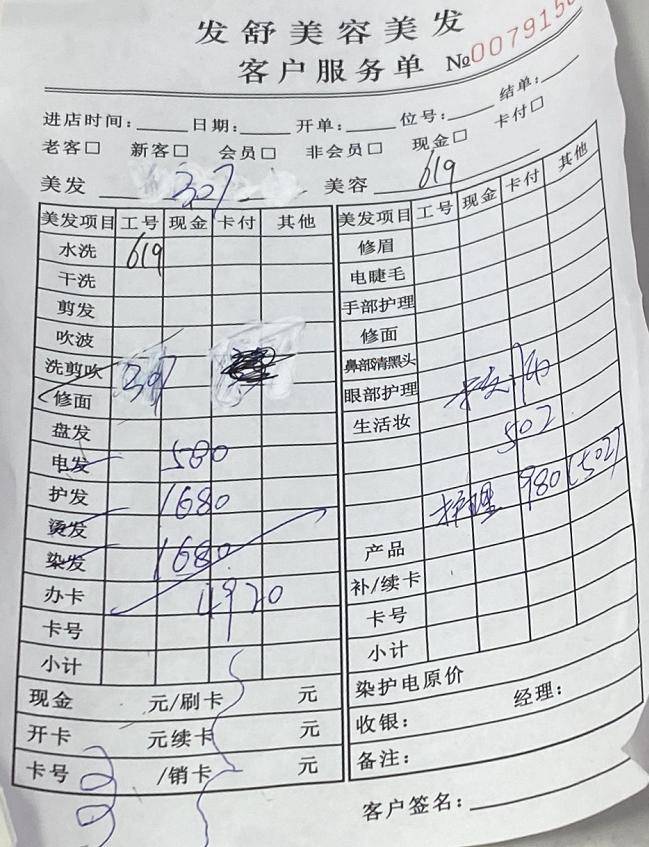 发舒美容美发
客户服务单 №007915
进店时间: 日期: 开单: 位号: 结单:
老客□ 新客□ 会员□ 非会员□ 现金□ 卡付□
美发 307 美容 619
美发项目 工号 现金 卡付 其他 美发项目 工号 现金 卡付 其他
水洗 619 修眉
干洗 电睫毛
剪发 手部护理
吹波 修面
洗剪吹 307 鼻部清黑头
修面 眼部护理
盘发 生活妆 502
电发 580
护发 1680 护理 980(502)
烫发
染发 1680 产品
办卡 4920 补/续卡
卡号 卡号
小计 小计
现金 元/刷卡 元 染护电原价
开卡 元续卡 元 收银: 经理:
卡号 /销卡 元 备注:
客户签名: